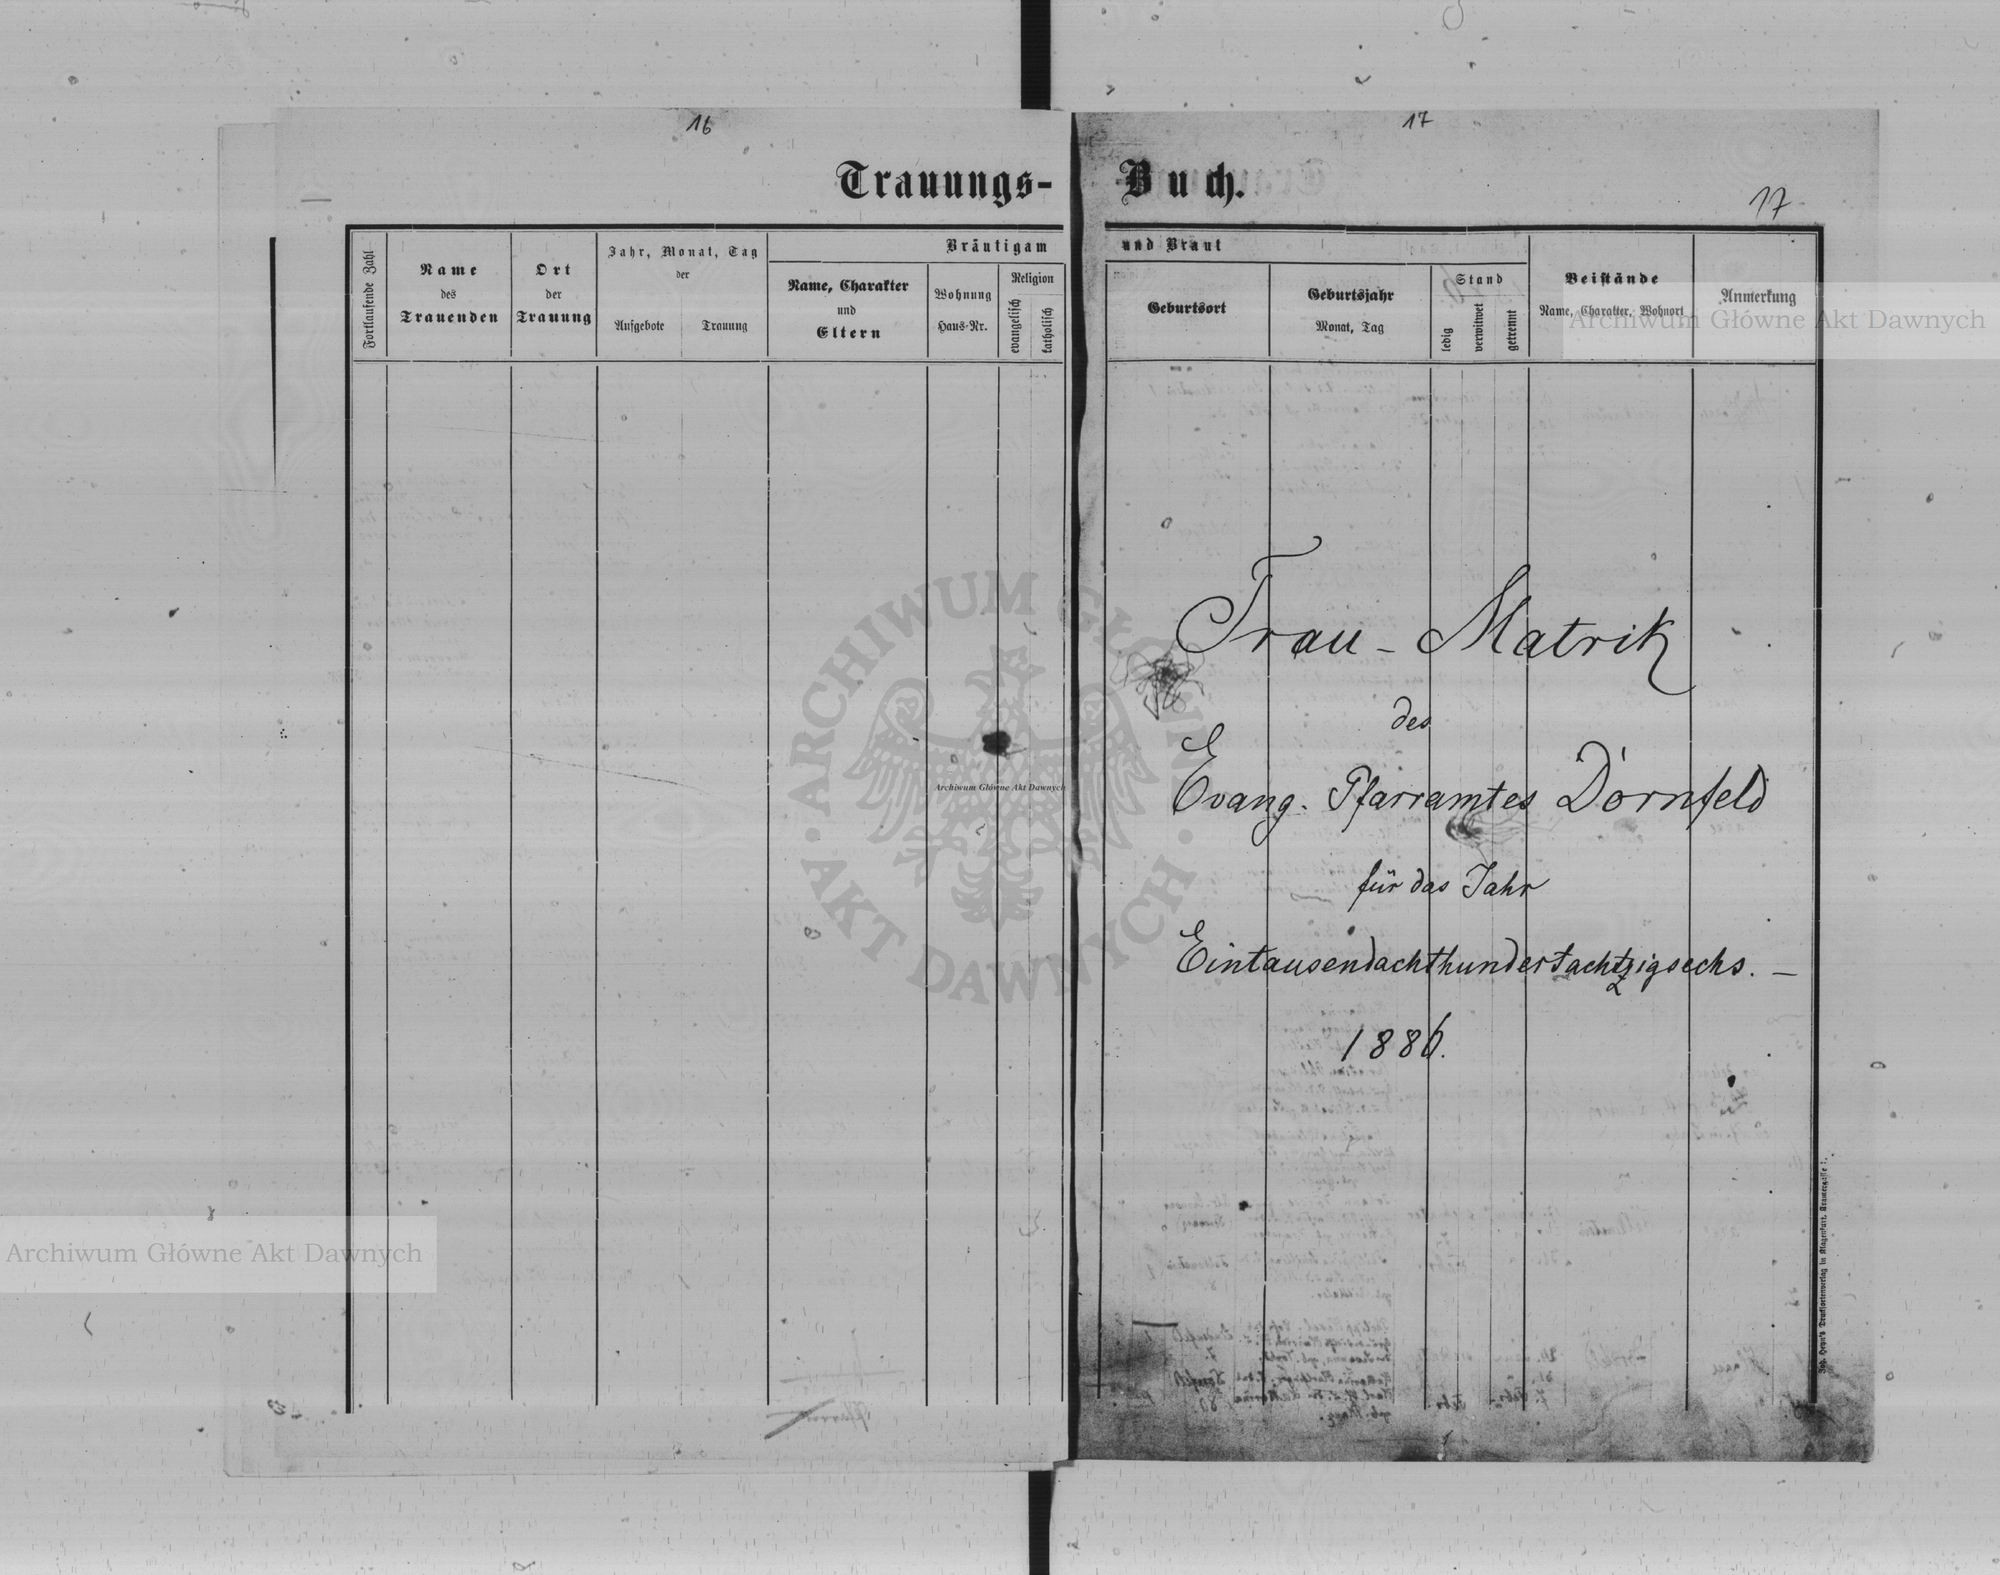 16
17
Trauungs-
Buch.
17
Fortlaufende Zahl
Name
des
Trauenden
Ort
der
Trauung
Jahr, Monat, Tag
der
Aufgebote
Trauung
Bräutigam
Name, Charakter
und
Eltern
Wohnung
Haus-Nr.
Religion
evangelisch
katholisch
und Braut
Geburtsort
Geburtsjahr
Monat, Tag
Stand
ledig
verwitwet
getrennt
Beistände
Name, Charakter, Wohnort
Anmerkung
Archiwum Główne Akt Dawnych
Trau-Matrik
des
Evang. Pfarramtes Dornfeld
für das Jahr
Eintausendachthundertachtzigsechs. –
1886.
ARCHIWUM GŁÓWNE
AKT DAWNYCH
Archiwum Główne Akt Dawnych
Archiwum Główne Akt Dawnych